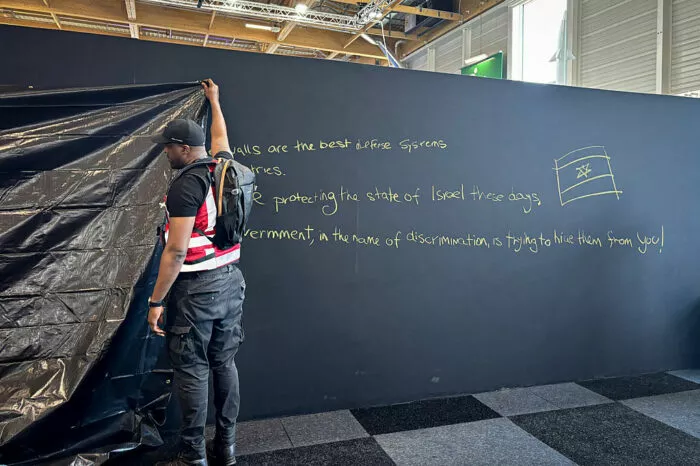 walls are the best defense systems
tries.
R protecting the state of Israel these days,
vernment, in the name of discrimination, is trying to hide them from you!